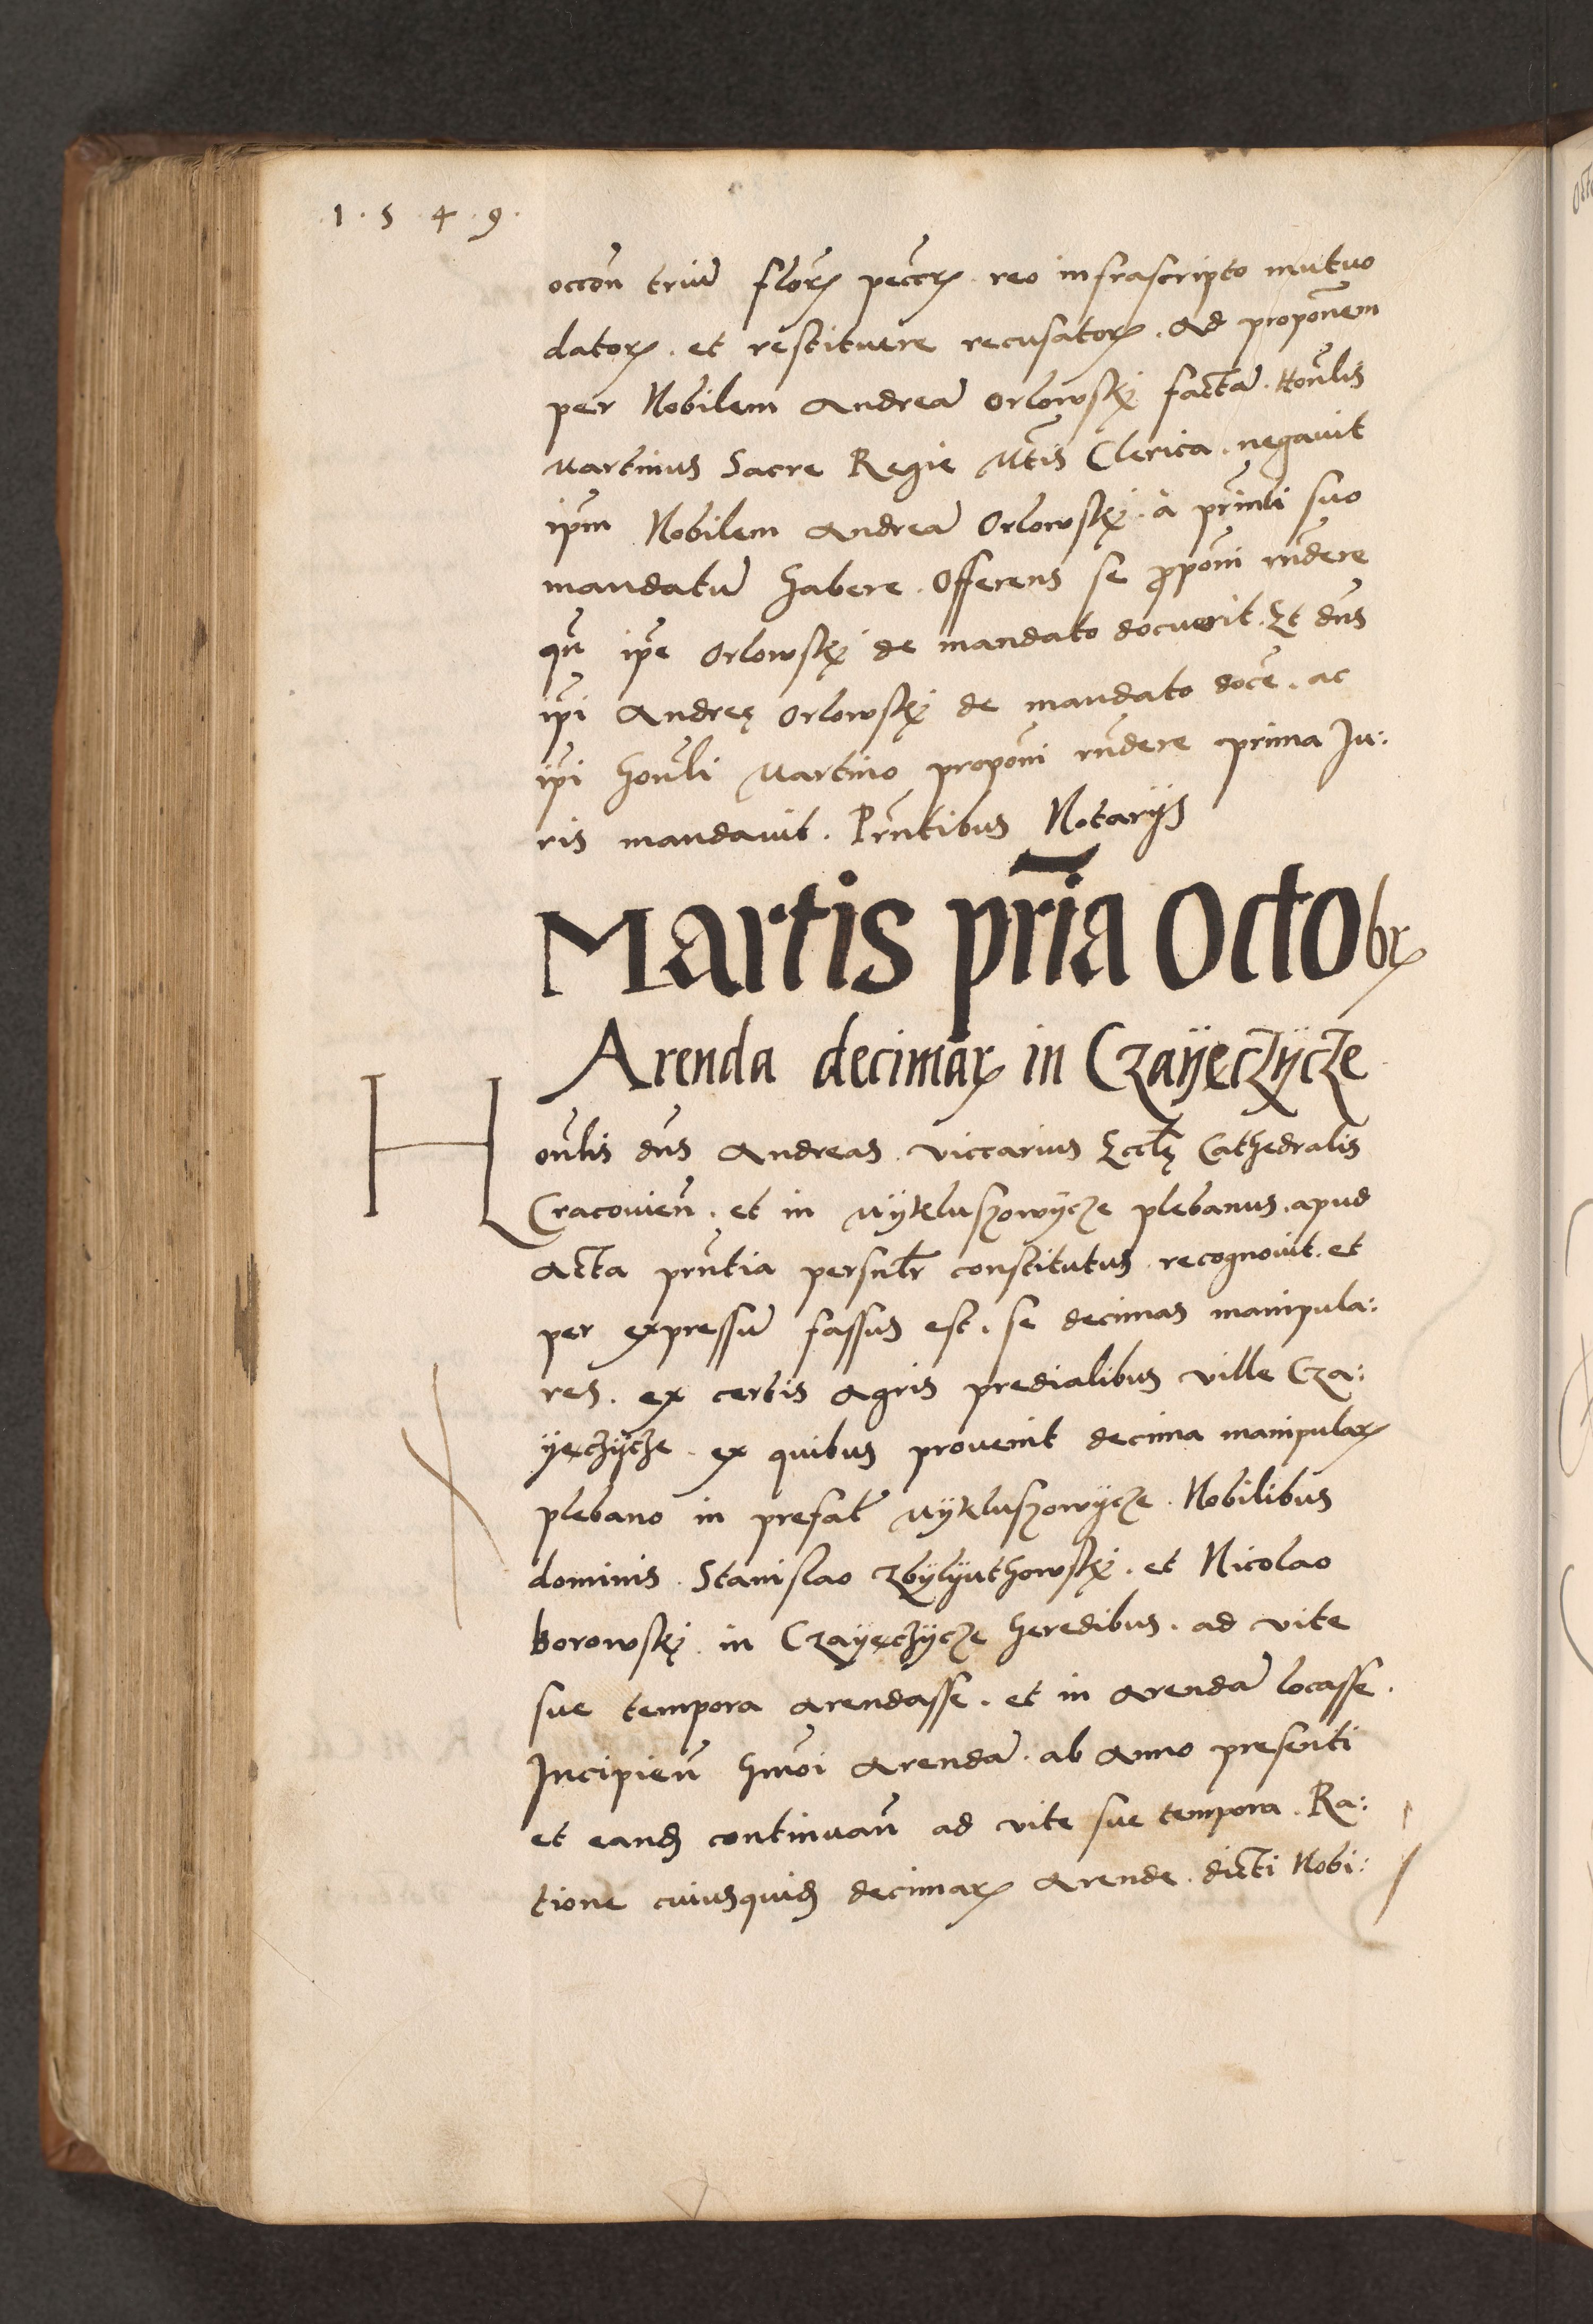 1·5·4·9·
occōn̄ triū florꝝ pecc̄rꝝ reo infrascripto mutuo
datorꝝ. et restituere recusatorꝝ. Ad propōnem
per Nobilem Andreā Orlowsky factā. Hon̄lis
Martinus Sacre Regie Mt̄is Clerica. negavit
ip̄m Nobilem Andreā Orlowsky. à prīnli suo
mandatū habere. Offerens se ꝓpōni rn̄dere
qn̄ ip̄e Orlowsky de mandato docuerit. Et dn̄s
ip̄i Andreę Orlowsky de mandato docē. ac
ip̄i hon̄li Martino propōni rn̄dere prima Ju:
ris mandavit. Prn̄tibus Notarijs
Martis prīa Octobrꝝ
Arenda decimarꝝ in Czayeczycze
Hon̄lis dn̄s Andreas. viccarius Eccłę Cathedralis
Cracovien̄. et in Mykluszowycze plebanus. apud
Acta prn̄tia personlr̄ constitutus. recognovit. et
per expressū fassus est. se decimas manipula:
res. ex certis Agris predialibus ville Cza:
yeczycze. ex quibus provenit decima manipularꝝ
plebano in prefat̄ Mykluszowycze. Nobilibus
dominis. Stanislao Zbylyuthowsky. et Nicolao
borowsky. in Czayeczycze heredibus. ad vite
sue tempora Arendasse. et in Arendā locasse.
Incipien̄ hmōi Arendā. ab Anno presenti
et eandꝫ continuan̄ ad vite sue tempora. Ra:
tione cuiusquidꝫ decimarꝝ Arende. dicti Nobi: